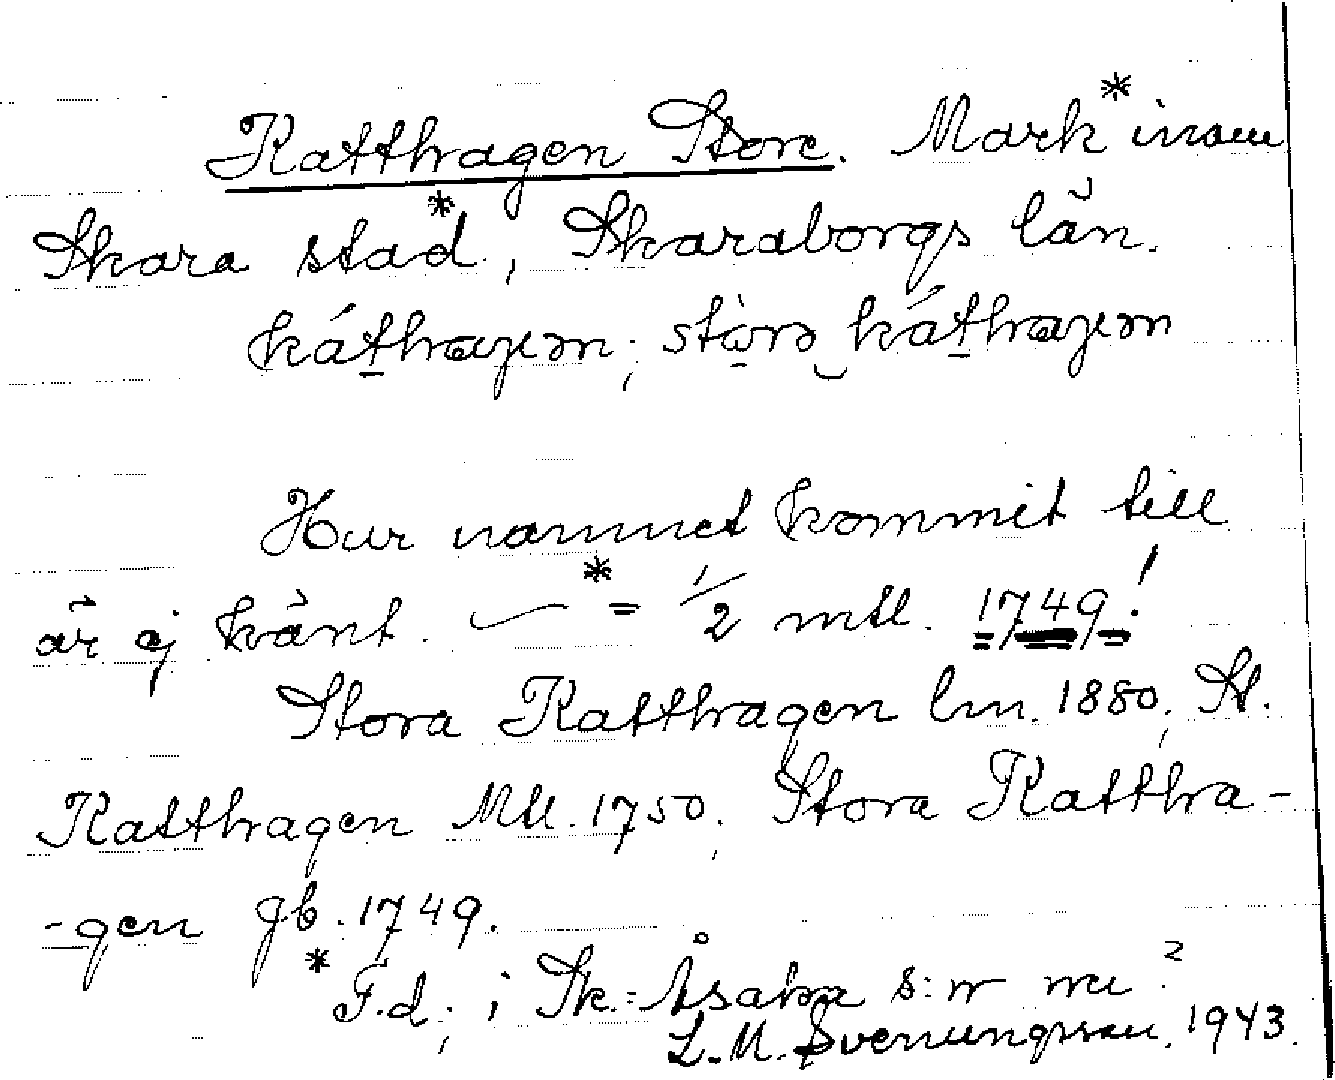 Katthagen Store. Mark* inom
Skara stad*, Skaraborgs län.
káthagen; störə káthagen
Hur namnet kommit till
är ej känt. — * = 1/2 mtl. 1749!
Stora Katthagen lm. 1880, St.
Katthagen Mtl. 1750, Stora Kattha-
-gen jb. 1749.
* F.d. i Sk.-Åsaka s:n nu?
L. M. Svenungsson. 1943.